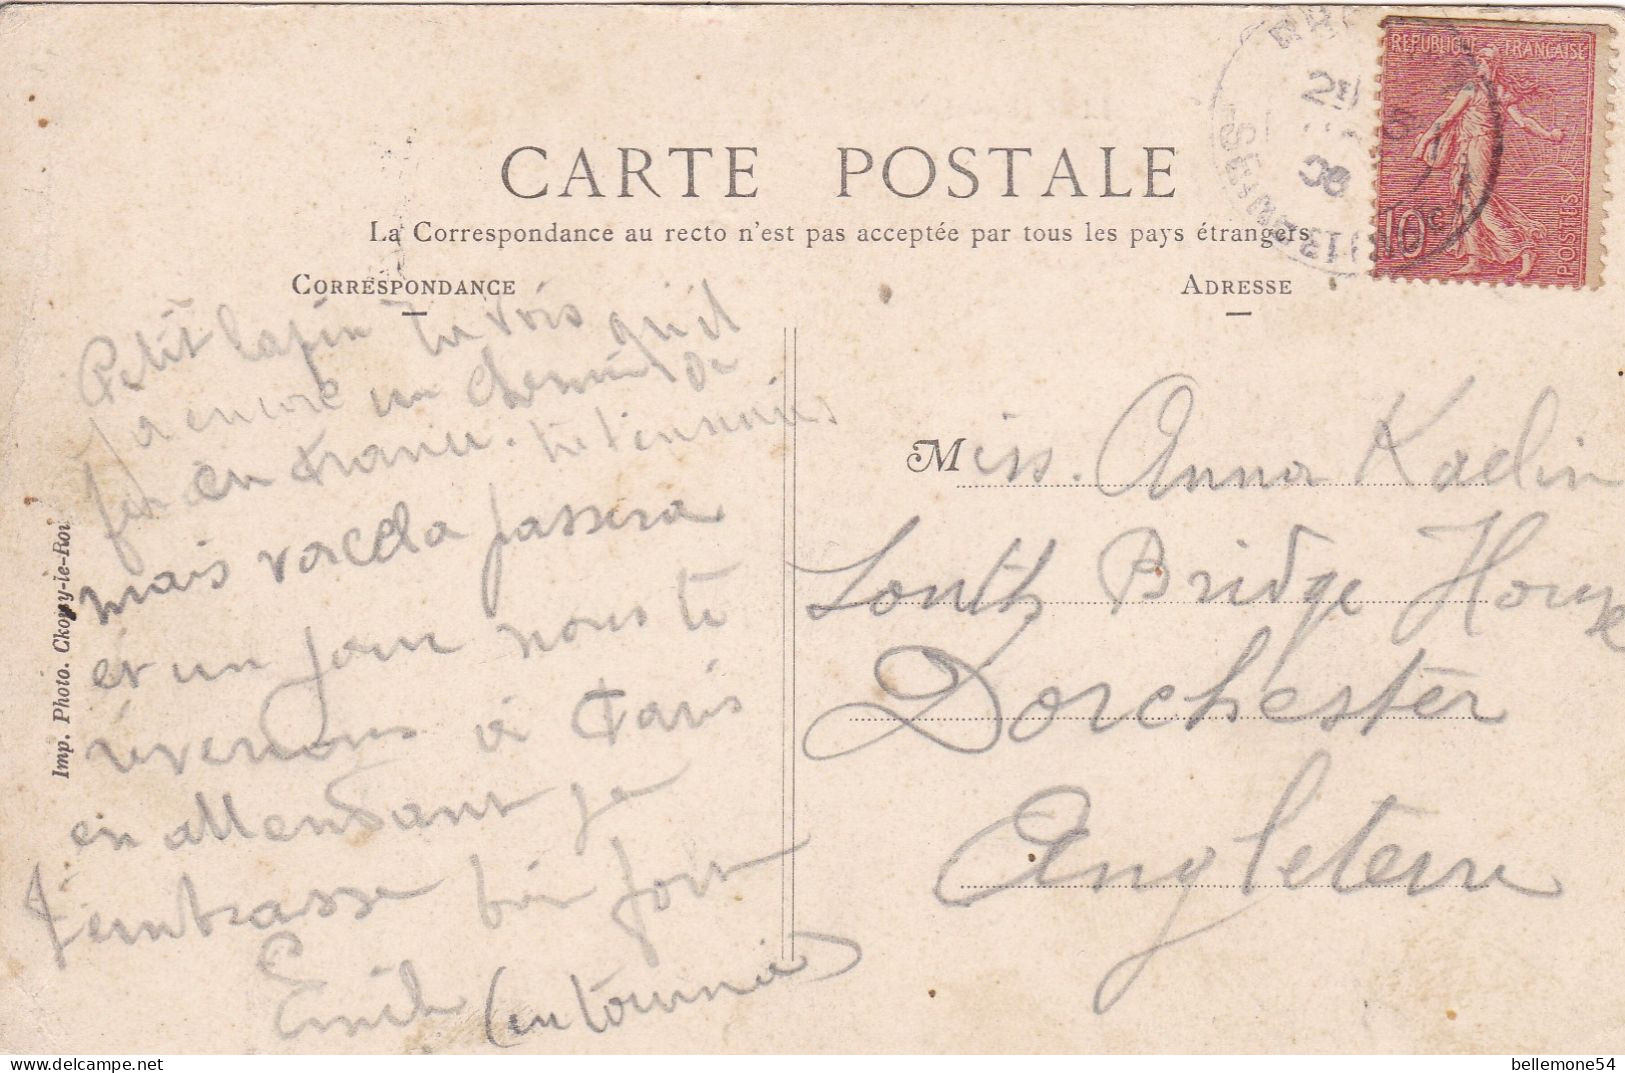 CARTE POSTALE
La Correspondance au recto n'est pas acceptée par tous les pays étrangers
CORRESPONDANCE
ADRESSE
REPUBLIQUE FRANÇAISE
10c
POSTES
SEINE
Petit lapin tu vois qu'il
y a encore un chemin de
fer en France. tu t'ennuies
mais va cela passera
et un jour nous te
reverrons à Paris
en attendant je
t'embrasse bien fort
Emile (en tournée)
Miss. Anna Kadin
South Bridge House
Dorchester
Angleterre
Imp. Photo. Ckoisy-le-Roi
bellemone54